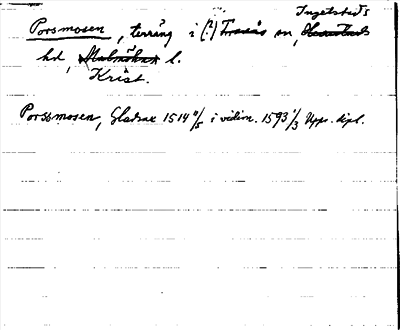 Ingelstads
Porsmosen, terräng i (?) Tranås sn,
hd, Malmöhus l.
Krist.
Porssmosen, Gladsax 1514 11/5 i vidim. 1593 1/3 Upps. dipl.